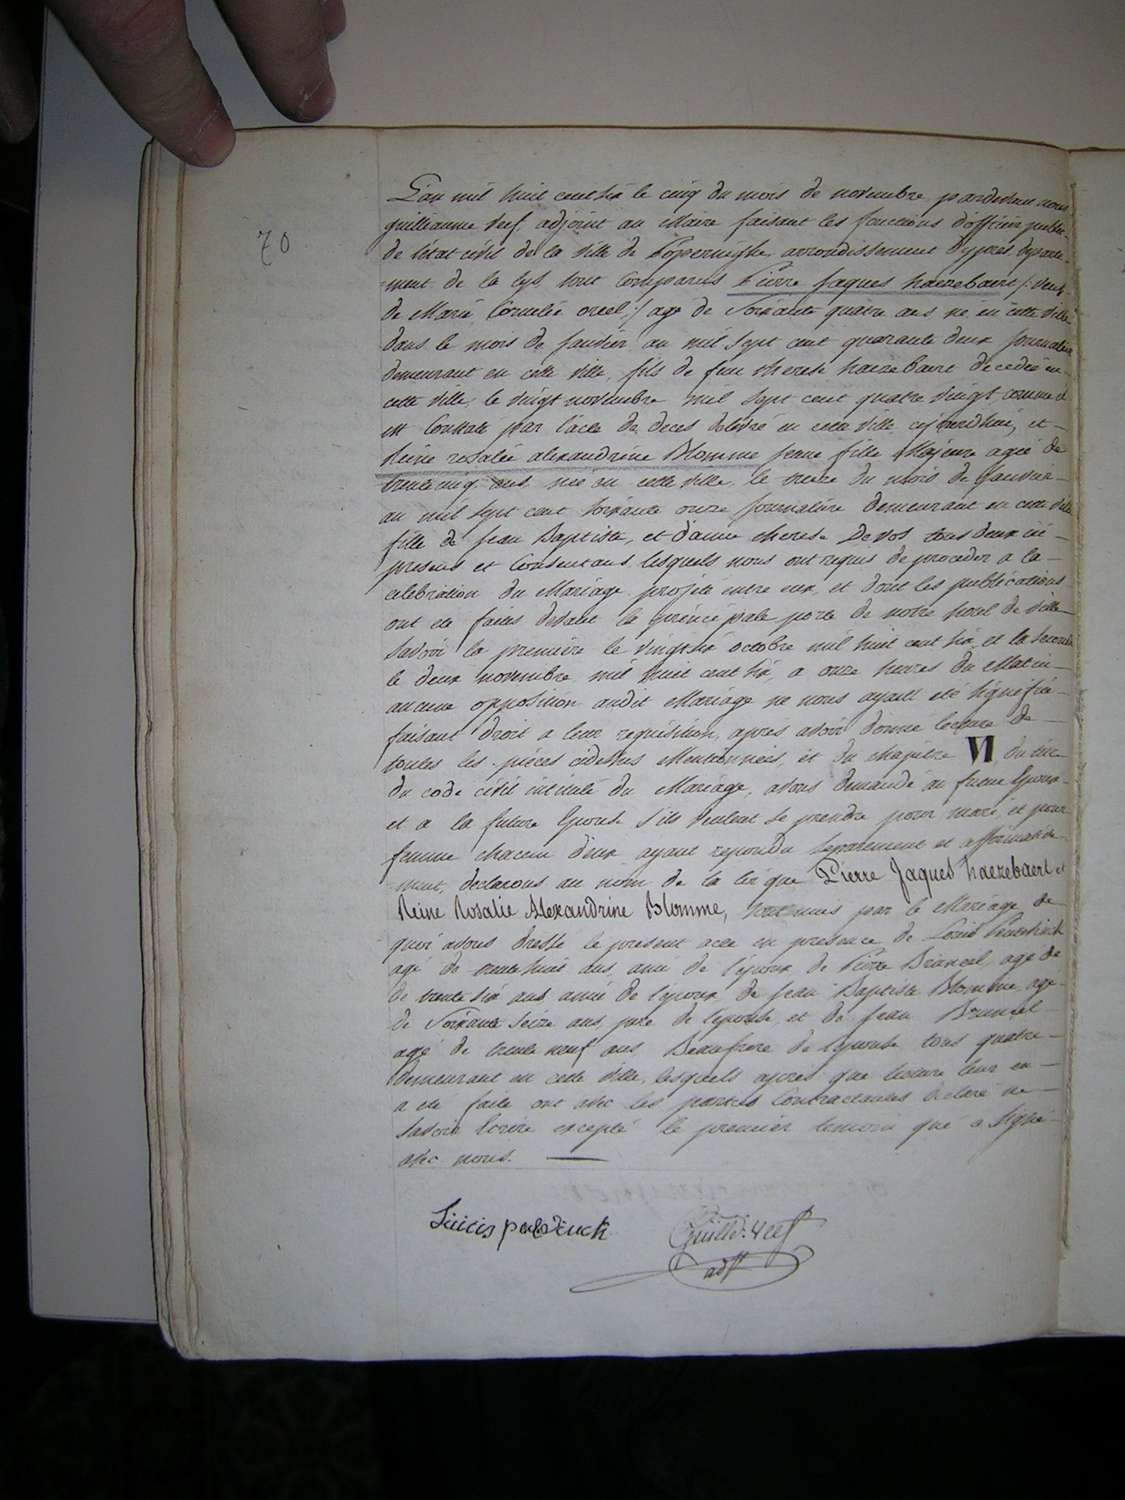 70
L'an mil huit cent six le cinq du mois de novembre pardevant nous
guillaume Veef adjoint au Maire faisant les fonctions d'officier public
de l'etat civil de la ville de Poperinghe arrondissement d'ypres departe-
ment de la Lys sont comparus Pierre Jaques haezebaert /: veuf
de Marie Cornelie :/ agé de soixante quatre ans né en cette ville
dans le mois de janvier an mil sept cent quarante deux journalier
demeurant en cette ville, fils de feu therese haezebaert decedée en
cette ville, le vingt novembre mil sept cent quatre vingt, comme il
est constaté par l'acte de deces delivré en cette ville cejourdhui, et
Reine rosalie alexandrine Blomme jeune fille Majeure agée de
trente cinq ans née en cette ville, le treize du mois de Janvier
an mil sept cent soixante onze journalière demeurant en cette ville
fille de jean Baptiste, et d'anne therese Devos tous deux ici
presens et consentans lesquels nous ont requis de proceder a la
celebration du Mariage projeté entre eux, et dont les publications
ont été faites devant la principale porte de notre hotel de ville
savoir la premiere le vingtsix octobre mil huit cent six et la seconde
le deux novembre mil huit cent six, a onze heures du Matin
aucune opposition audit Mariage ne nous ayant été signifiée
faisant droit a leur requisition, apres avoir donné lecture de
toutes les pieces cidessus Mentionnées, et du chapitre VI du titre
du code civil intitulé du Mariage, avons demandé au futur Epoux
et a la future Epouse s'ils veulent se prendre pour mari, et pour
femme chacun d'eux ayant repondu separement et affirmative-
ment, declarons au nom de la loi que Pierre Jaques haezebaert et
Reine Rosalie Alexandrine Blomme, sont unis par le Mariage de
quoi avons dressé le present acte en presence de Louis
agé de trente huit ans, ami de l'epoux de Pierre Briancel, agé de
de trente six ans amie de l'epoux de jean Baptiste Blomme, agé
de Soixante Seize ans, pere de l'epouse, et de jean
agé de trente neuf ans Beaufrere de l'epouse tous quatre
demeurant en cette ville, lesquels apres que lecture leur en
a été faite ont avec les parties Contractantes declaré ne
savoir Ecrire excepté le premier temoin qui a signé
avec nous.
Guill. Veef
adjt